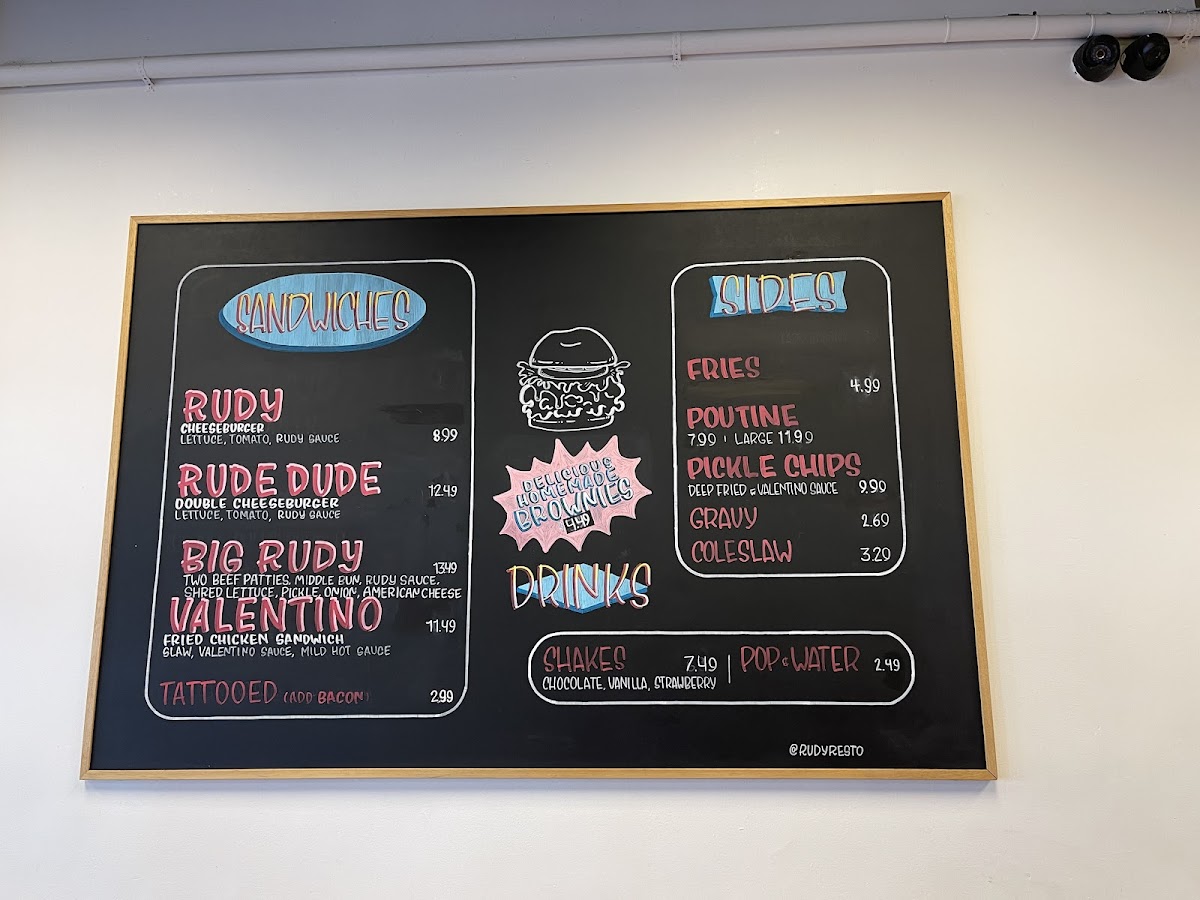 SANDWICHES
RUDY
CHEESEBURGER
LETTUCE, TOMATO, RUDY SAUCE 8.99
RUDE DUDE
DOUBLE CHEESEBURGER 12.49
LETTUCE, TOMATO, RUDY SAUCE
BIG RUDY 13.49
TWO BEEF PATTIES, MIDDLE BUN, RUDY SAUCE,
SHRED LETTUCE, PICKLE, ONION, AMERICAN CHEESE
VALENTINO 11.49
FRIED CHICKEN SANDWICH
SLAW, VALENTINO SAUCE, MILD HOT SAUCE
TATTOOED (ADD BACON) 2.99
DELICIOUS
HOMEMADE
BROWNIES
4.49
SIDES
FRIES
4.99
POUTINE
7.99 | LARGE 11.99
PICKLE CHIPS
DEEP FRIED & VALENTINO SAUCE 9.99
GRAVY 2.69
COLESLAW 3.20
DRINKS
SHAKES 7.49 | POP & WATER 2.49
CHOCOLATE, VANILLA, STRAWBERRY
@RUDYRESTO